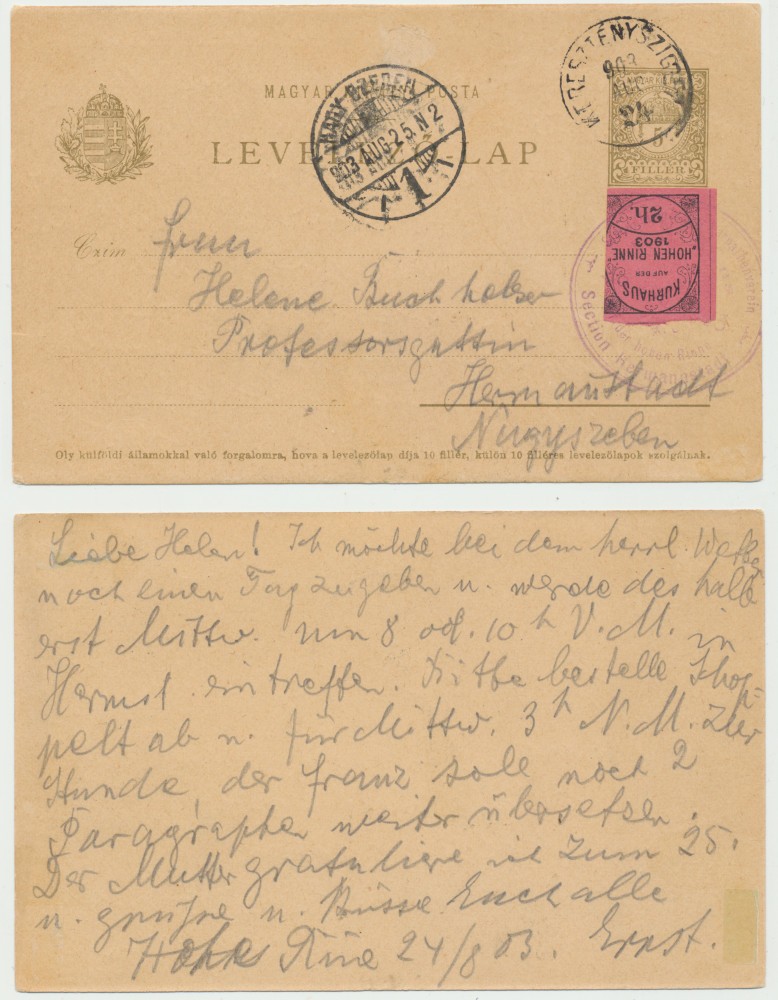 MAGYAR KIR. POSTA
LEVELEZŐ-LAP
KERESZTÉNYSZIGET
903
AUG
24
NAGY-SZEBEN
903 AUG 25. N 2
1
5
FILLÉR
2h.
KURHAUS
AUF DER
"HOHEN RINNE"
1903
Section Hermannstadt
Czim
Frau
Helene Buchholzer
Professorsgattin
Hermannstadt
Nagyszeben
Oly külföldi államokkal való forgalomra, hova a levelezőlap díja 10 fillér, külön 10 filléres levelezőlapok szolgálnak.
Liebe Helen! Ich möchte bei dem herrl. Wetter
noch einen Tag zugeben u. werde deshalb
erst Mittw. um 8 od. 10 h V.M. in
Hermst eintreffen. Bitte bestelle
pelt ab u. für Mittw. 3 h N.M. zur
Stunde, der Franz sole noch 2
Paragraphen weiter übersetzen.
Der Mutter gratuliere ich zum 25.
u. grüsse u. küsse Euch alle
Hohe Rine 24/8 03. Ernst.